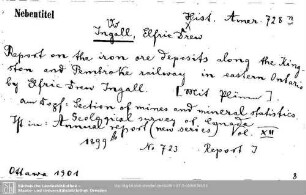 Nebentitel
Hist. Amer. 728
Vo
Ingall, Elfric Drew
Report on the iron ore deposits along the King
ston and Pembroke railway in eastern Ontario
by Elfric Drew Ingall. [Mit Plänen].
Section of mines and mineral statistics
Geological survey of Canada
In: Annual report (new series) Vol. XII
1899
No. 723 Report I
Ottawa 1901